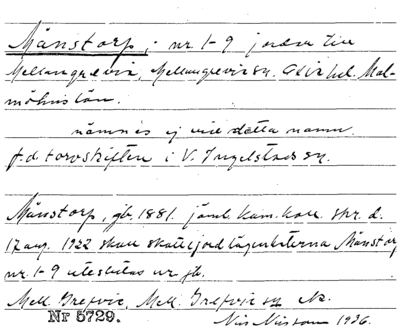 Månstorp, nr 1-9 jordar till
Mellangrevie, Mellangrevie sn. Oxie hd. Mal-
möhus län.
nämnes ej vid detta namn.
f.d torvskiften i V. Ingelstads sn.
Månstorp, jb. 1881. jäml. Kam. koll. skr. d.
17 aug. 1922 skall skattejordlägenheterna Månstorp
nr 1-9 uteslutas ur jb.
Mell. Grefvie, Mell. Grefvie sn
Nr 5729.
Nils Nilsson 1936.